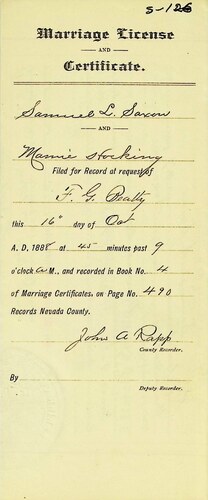 S-126
Marriage License
AND
Certificate.
Samuel L. Saxon
AND
Mamie Hocking
Filed for Record at request of
F. G. Beatty
this 16" day of Oct
A. D. 1888 at 45 minutes past 9
o'clock A M., and recorded in Book No. 4
of Marriage Certificates, on Page No. 490
Records Nevada County.
John A Rapp
County Recorder.
By
Deputy Recorder.